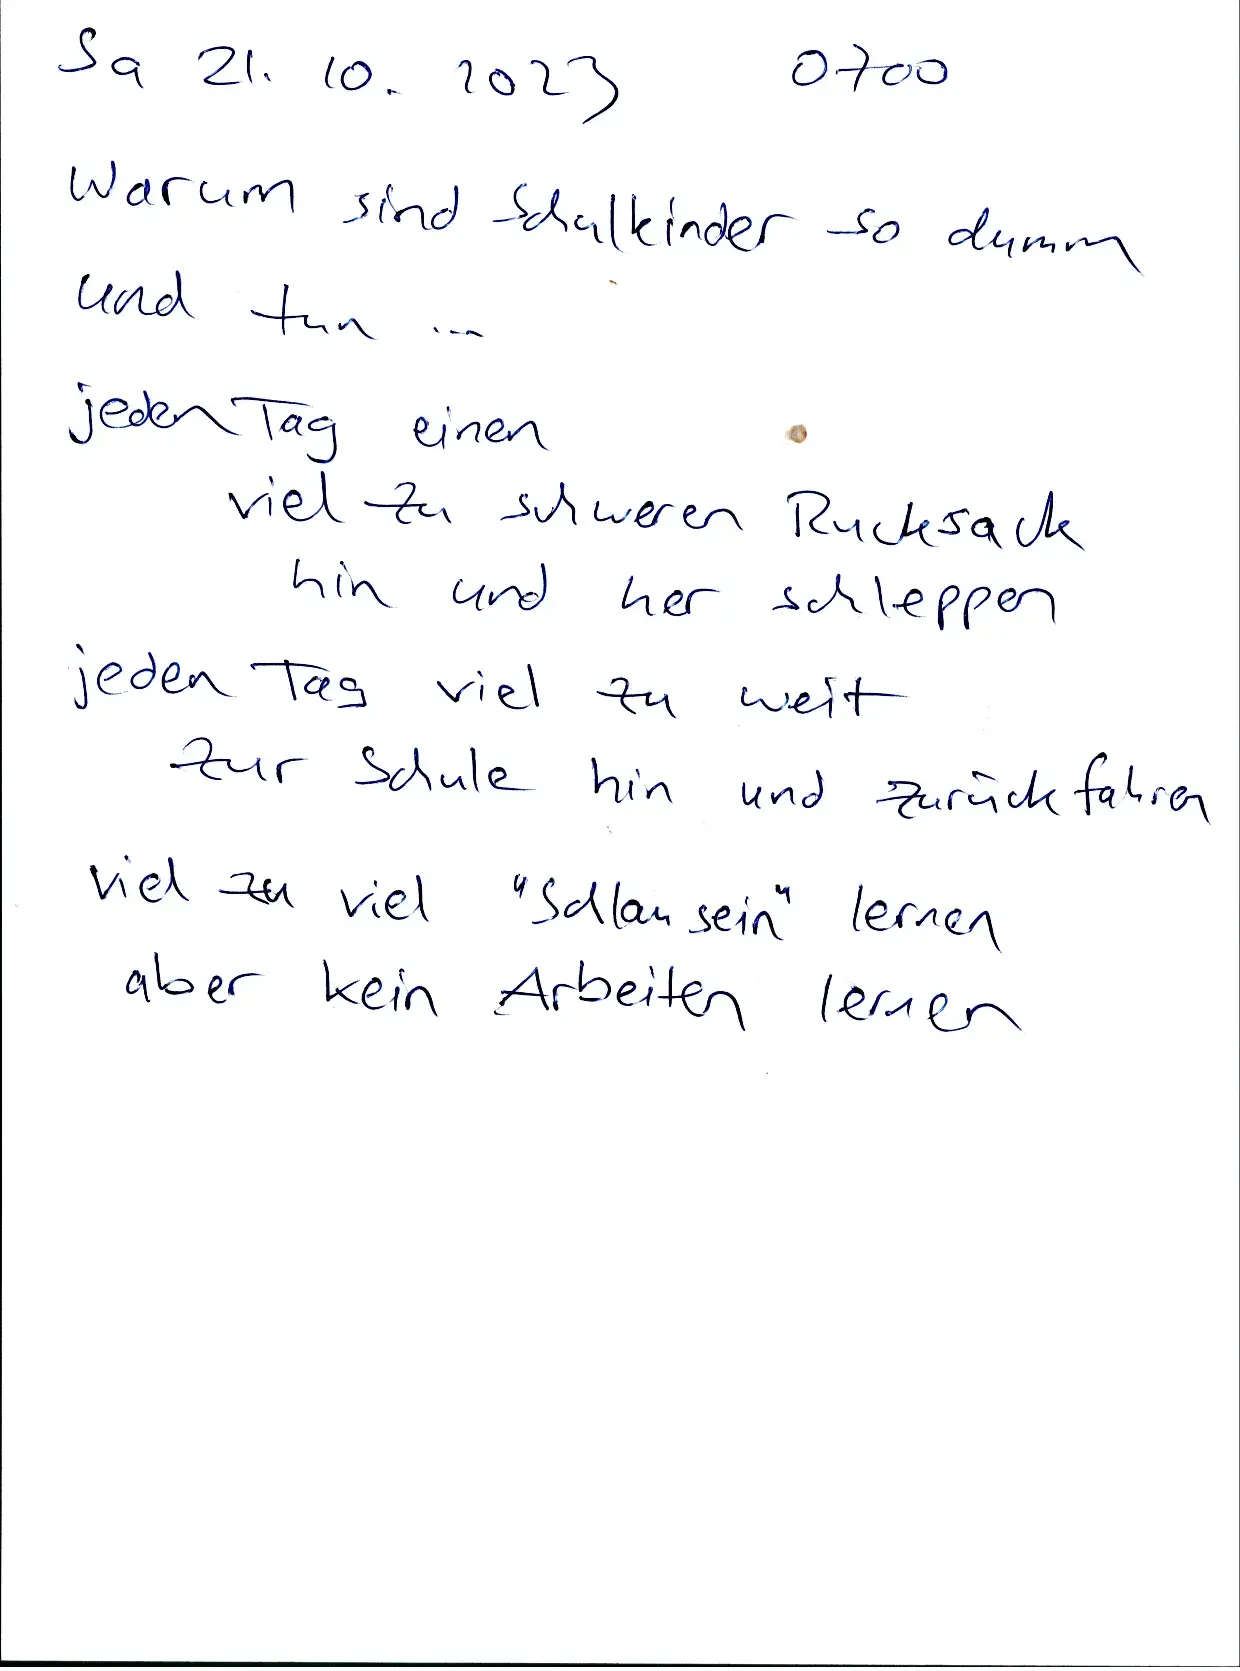 Sa 21. 10. 2023 0700
Warum sind Schulkinder so dumm
und tun ...
jeden Tag einen
viel zu schweren Rucksack
hin und her schleppen
jeden Tag viel zu weit
zur Schule hin und zurück fahren
viel zu viel "Schlau sein" lernen
aber kein Arbeiten lernen